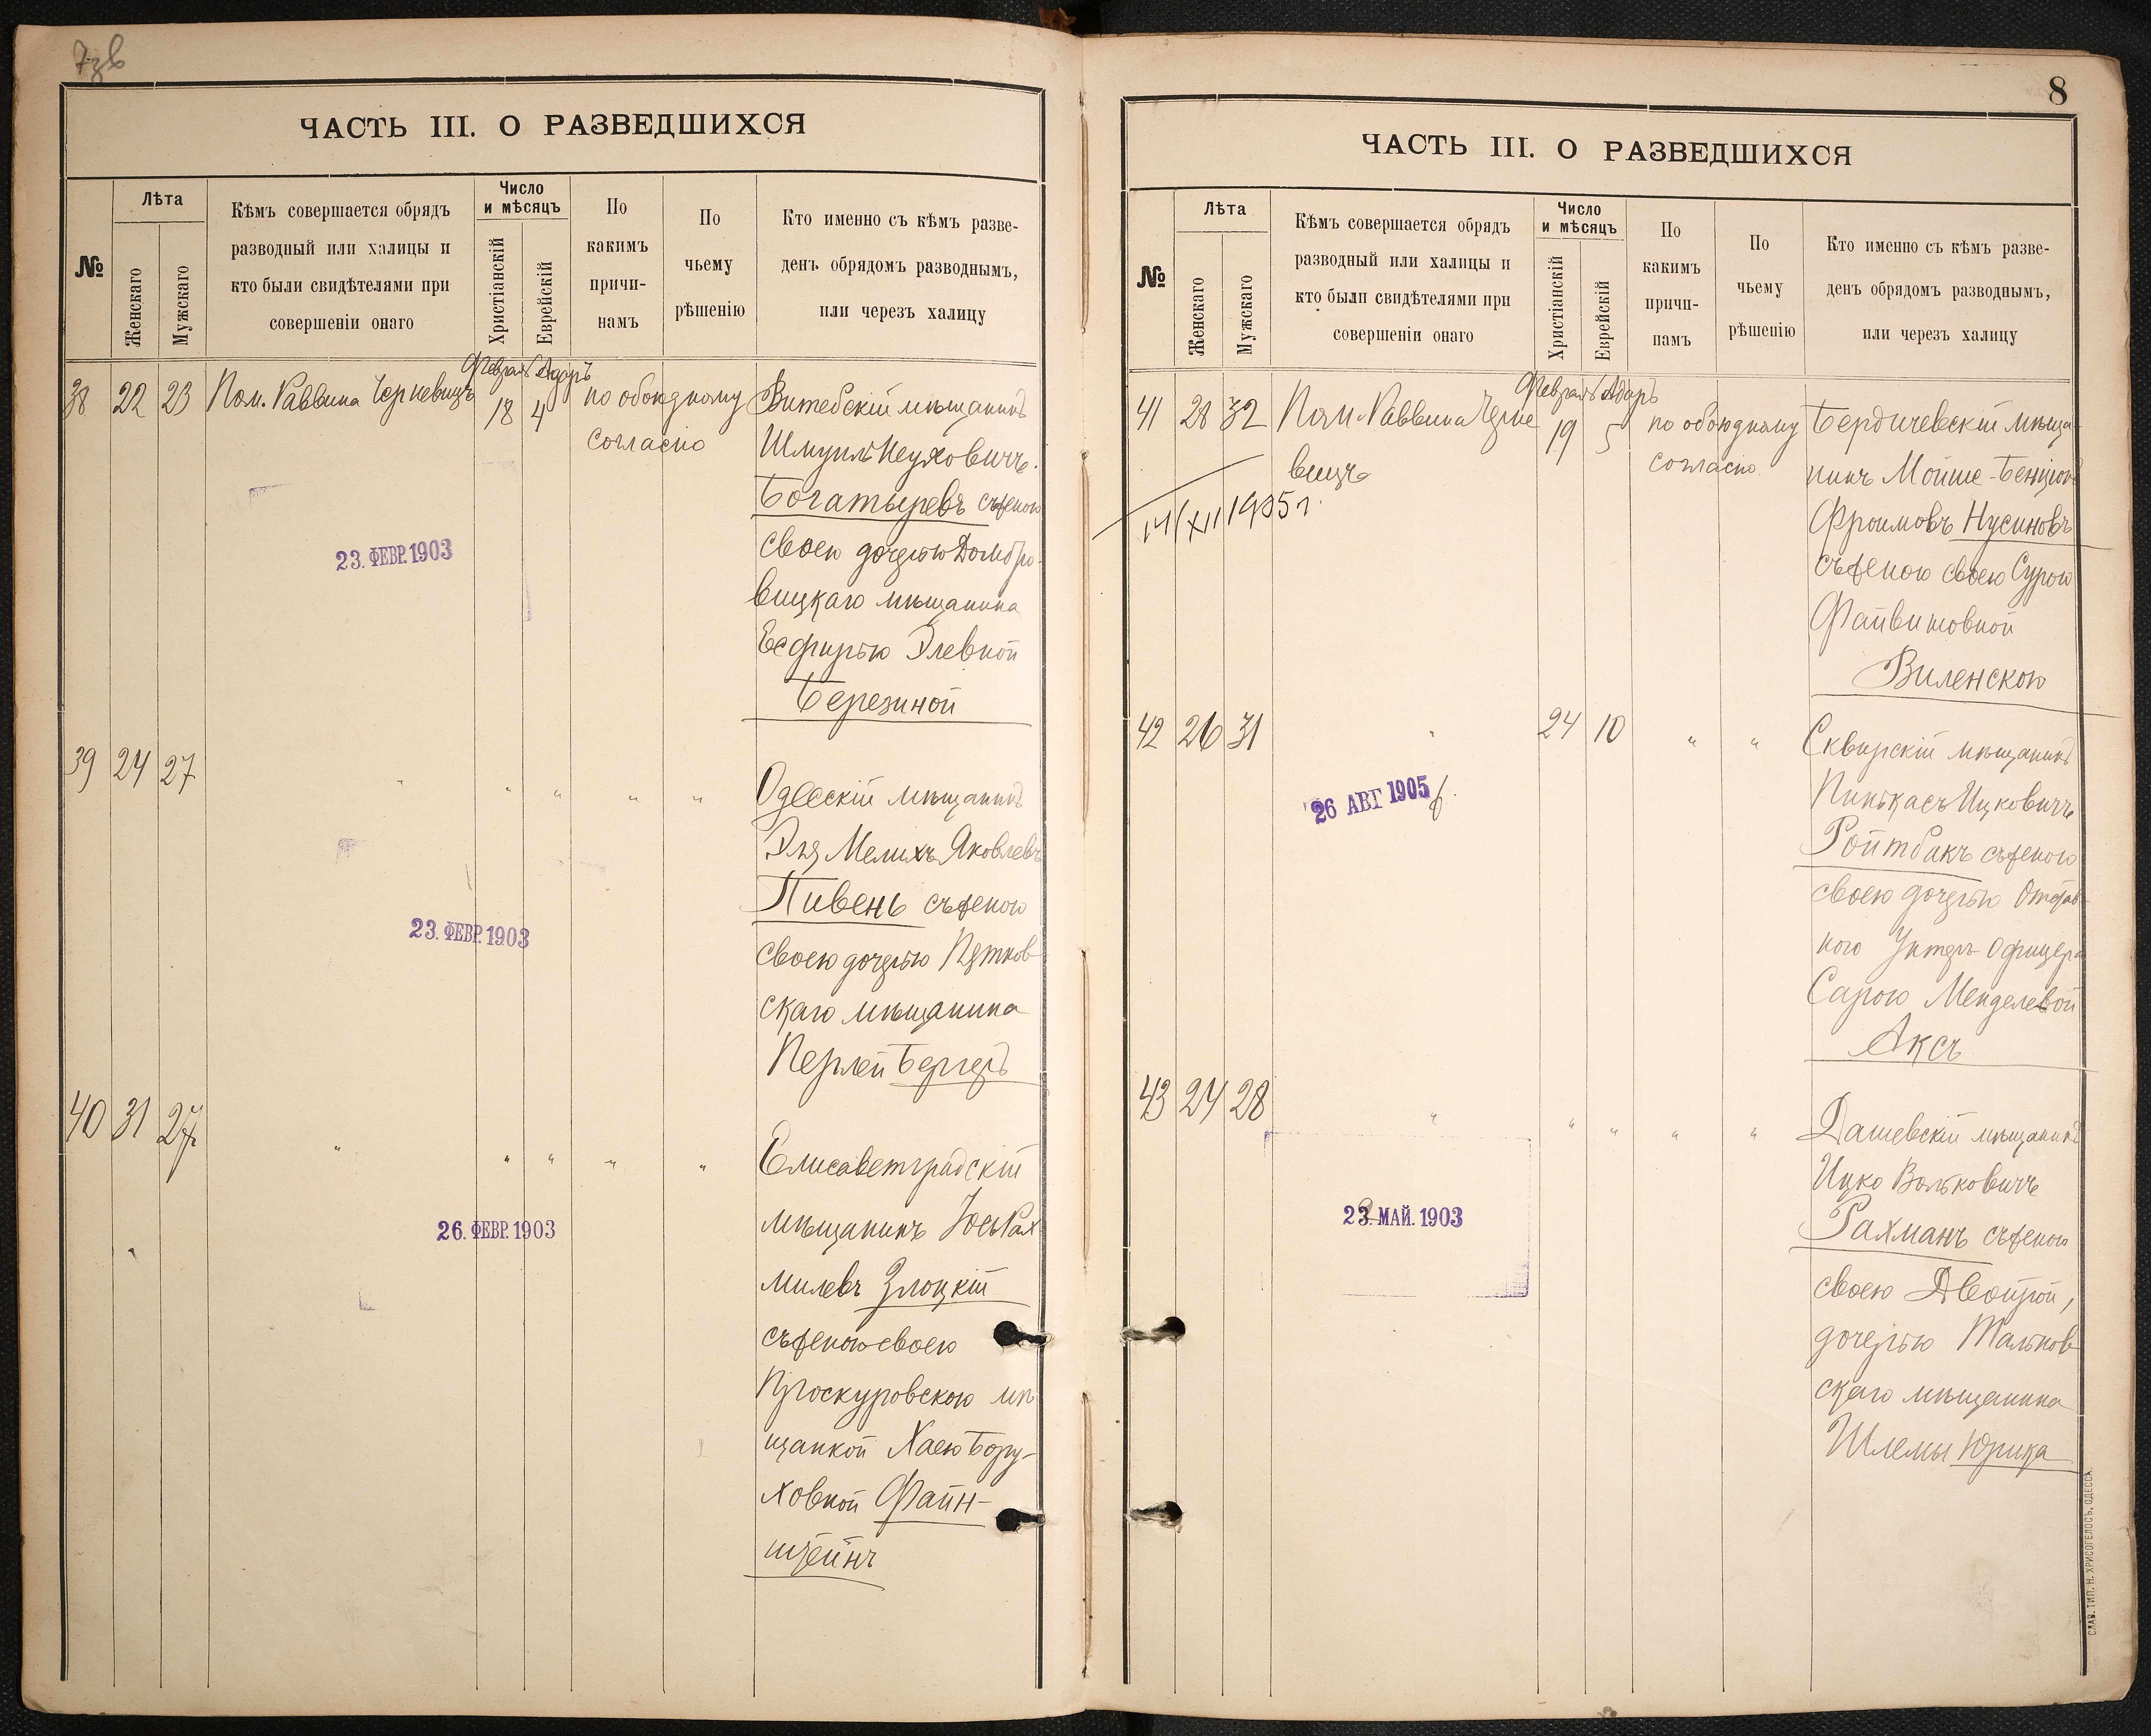 7зв
ЧАСТЬ III. О РАЗВЕДШИХСЯ
№
Лѣта
Женскаго
Мужскаго
Кѣмъ совершается обрядъ
разводный или халицы и
кто были свидѣтелями при
совершеніи онаго
Число
и мѣсяцъ
Христіанскій
Еврейскій
По
какимъ
причи-
намъ
По
чьему
рѣшенію
Кто именно съ кѣмъ разве-
денъ обрядомъ разводнымъ,
или черезъ халицу
Февраль Адаръ
38 22 23 Пом. Раввина Черкевичъ 18 4 по обоюдному
согласію
Витебскій мѣщанинъ
Шмуилъ
Богатыревъ съ женою
своею дочерью Домбро-
вицкаго мѣщанина
Есфирью Элевной
Березиной
23. ФЕВР. 1903
39 24 27 " " " " "
Одесскій мѣщанинъ
Эля Мелихъ Яковлевъ
Пивень съ женою
своею дочерью Пятков-
скаго мѣщанина
Перлей Бергеръ
23. ФЕВР. 1903
40 31 27 " " " " "
Елисаветградскій
мѣщанинъ Іось Рах
милевъ Злоцкій
съ женою своею
Проскуровскою мѣ
щанкой Хаею Бору-
ховной Файн-
штейнъ
26. ФЕВР. 1903
8
ЧАСТЬ III. О РАЗВЕДШИХСЯ
№
Лѣта
Женскаго
Мужскаго
Кѣмъ совершается обрядъ
разводный или халицы и
кто были свидѣтелями при
совершеніи онаго
Число
и мѣсяцъ
Христіанскій
Еврейскій
По
какимъ
причи-
намъ
По
чьему
рѣшенію
Кто именно съ кѣмъ разве-
денъ обрядомъ разводнымъ,
или черезъ халицу
Февраль Адаръ
41 28 32 Пом. Раввина Черке 19 5 по обоюдному
вичъ
согласію
14/XII 1905 г.
Бердичевскій мѣща-
нинъ Мойше-Бенціонъ
Фроимовъ Нусиновъ
съ женою своею Сурою
Файвишовной
Виленскою
42 26 31 " 24 10 " "
Сквирскій мѣщанинъ
Пинькасъ Ицковичъ
Ройтбакъ съ женою
своею дочерью Отстав-
ного Унтеръ-офицера
Сарою Менделевой
Аксъ
26 АВГ 1905
43 24 28 " " " " "
Дашевскій мѣщанинъ
Ицко Вольковичъ
Рахманъ съ женою
своею Двойрой,
дочерью Тальнов-
скаго мѣщанина
Шлемы Юрика
23. МАЙ. 1903
СЛАВ. ТИП. Н. ХРИСОГЕЛОСЪ, ОДЕССА.